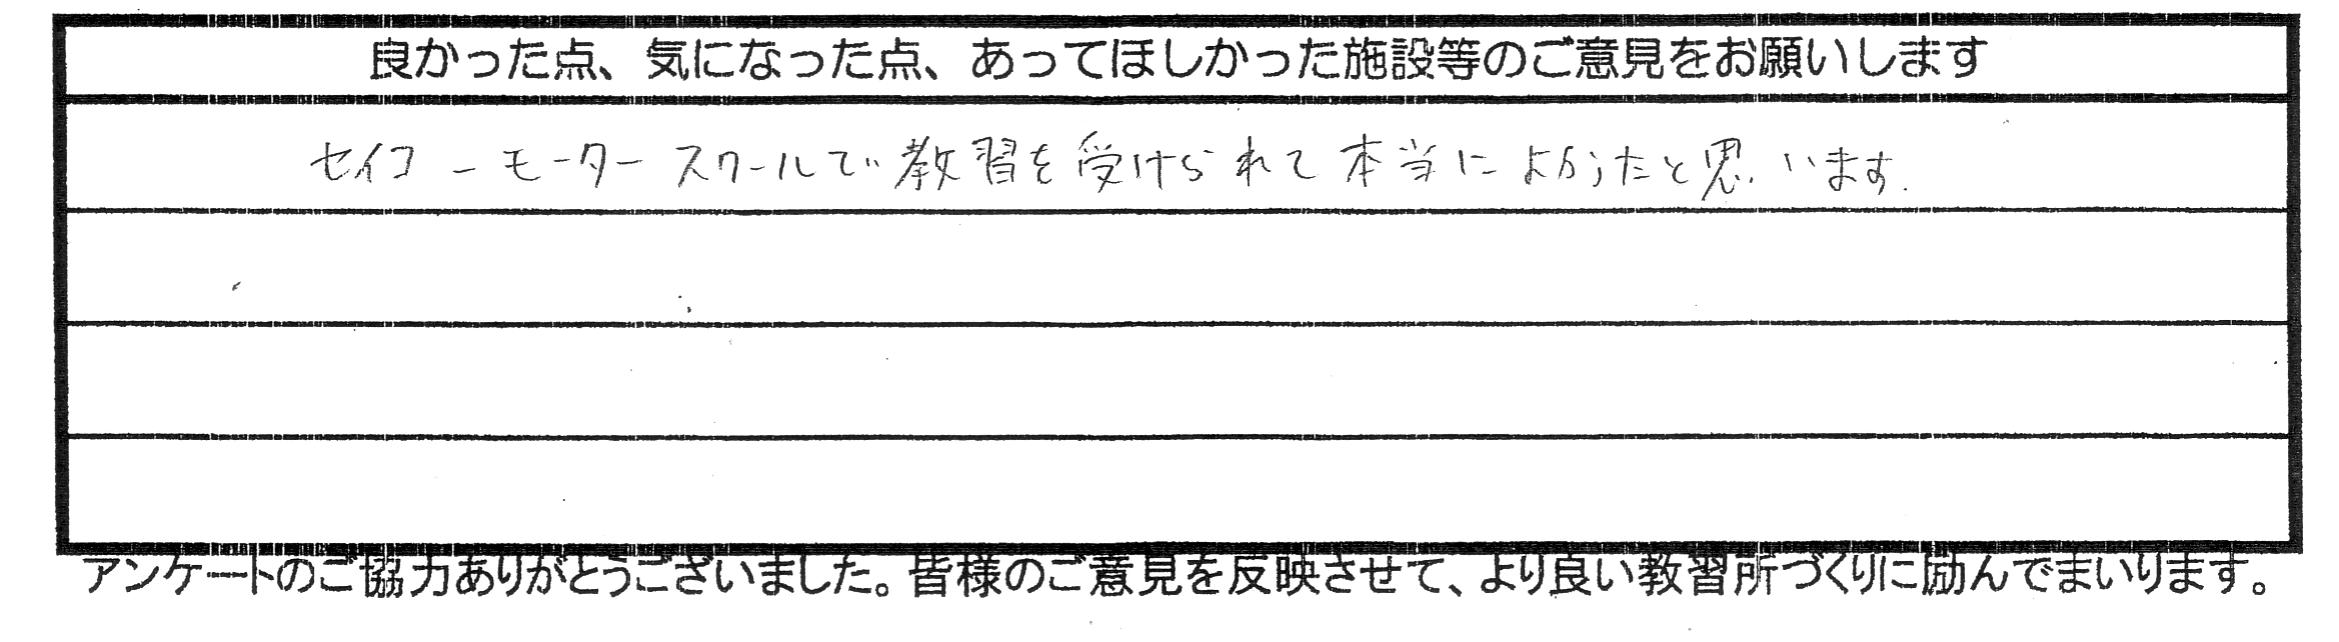 良かった点、気になった点、あってほしかった施設等のご意見をお願いします
セイコーモータースクールで教習を受けられて本当によかったと思います.
アンケートのご協力ありがとうございました。皆様のご意見を反映させて、より良い教習所づくりに励んでまいります。